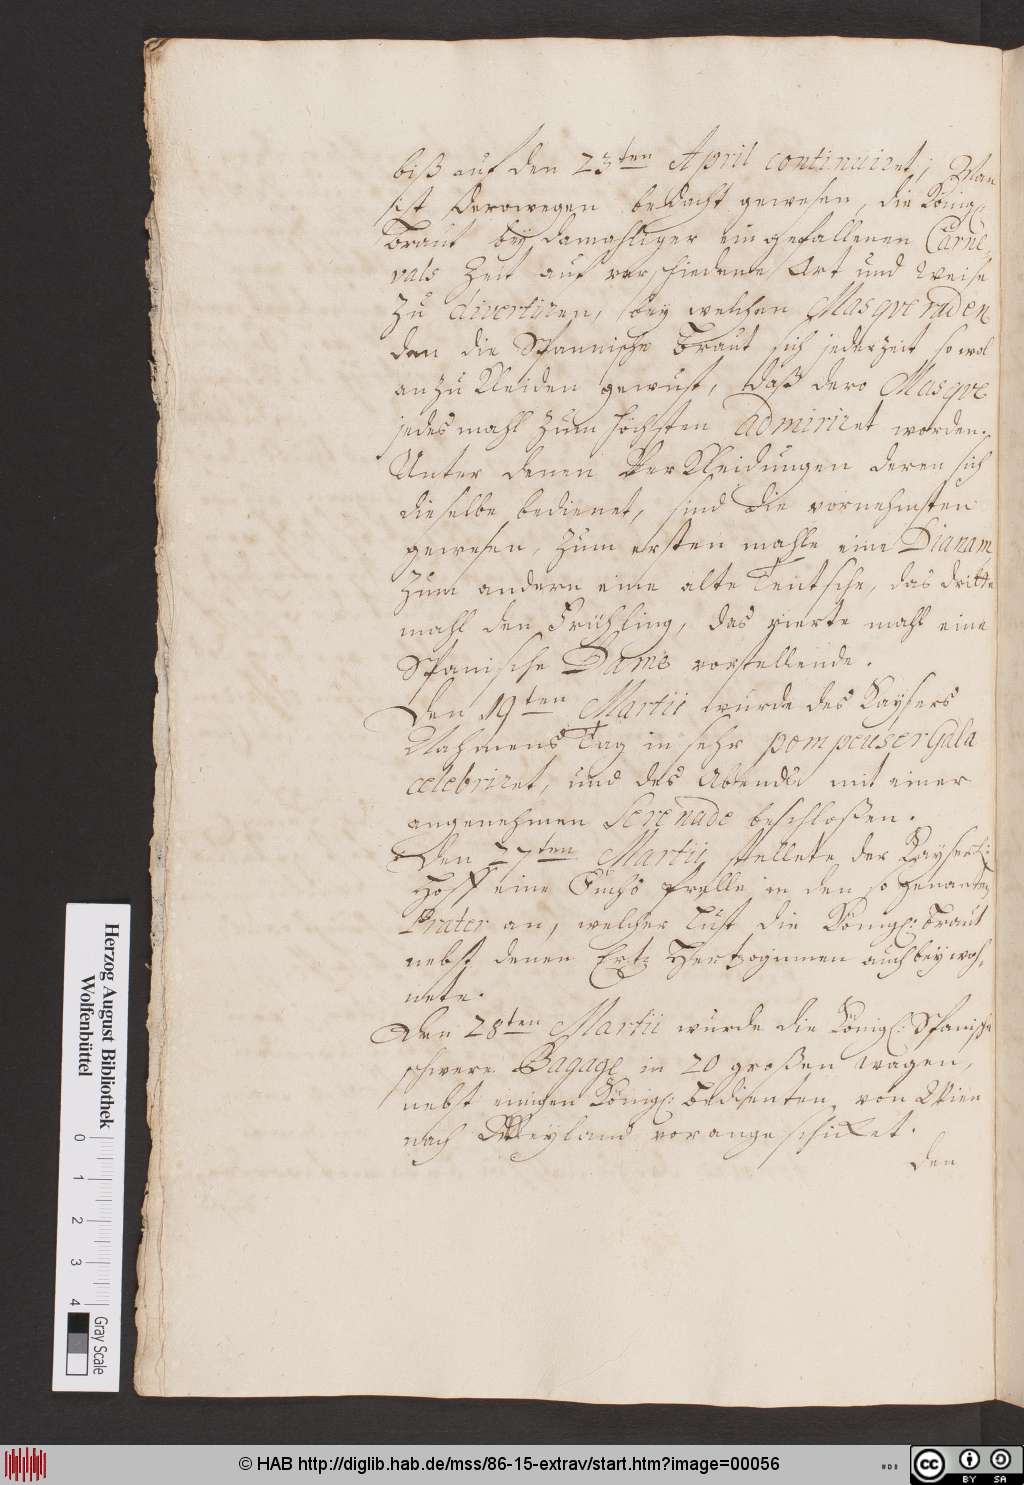 biß auf den 23ten April continuiret; Man
ist derowegen bedacht gewesen, die Königl:
Braut bey damahliger eingefallenen Carne-
vals Zeit auf verschiedene Art und Weise
Zu divertiren, bey welchen Masqveraden
den die Spannische Braut sich jederzeit so wol
anzukleiden gewust, daß dero Masqve
jedesmahl zum höchsten admiriret worden.
Unter denen Verkleidungen deren sich
dieselbe bedienet, sind die vornehmsten
gewesen, zum ersten mahle eine Dianam,
Zum andern eine alte Teutsche, das dritte
mahl den Frühling, das vierte mahl eine
Spanische Dame vorstellende.
Den 19ten Martii wurde des Kaysers
Nahmens Tag in sehr pompeuser Gala
celebriret, und des Abends mit einer
angenehmen Serenade beschloßen.
Den 27ten Martii stellete der Kayserl:
Hoff eine Fuchs prelle in den so genanten
Prater an, welcher Lust die Königl: Braut
nebst denen Ertz Hertzoginnen auch beywoh-
nete.
Den 28ten Martii wurde die Königl: Spanische
schwere Bagage in 20 großen Wagen,
nebst einigen Königl: Bedienten von Wien
nach Meyland vorangeschicket.
den
Herzog August Bibliothek
Wolfenbüttel
0 1 2 3 4
Gray Scale
© HAB http://diglib.hab.de/mss/86-15-extrav/start.htm?image=00056
CC BY SA